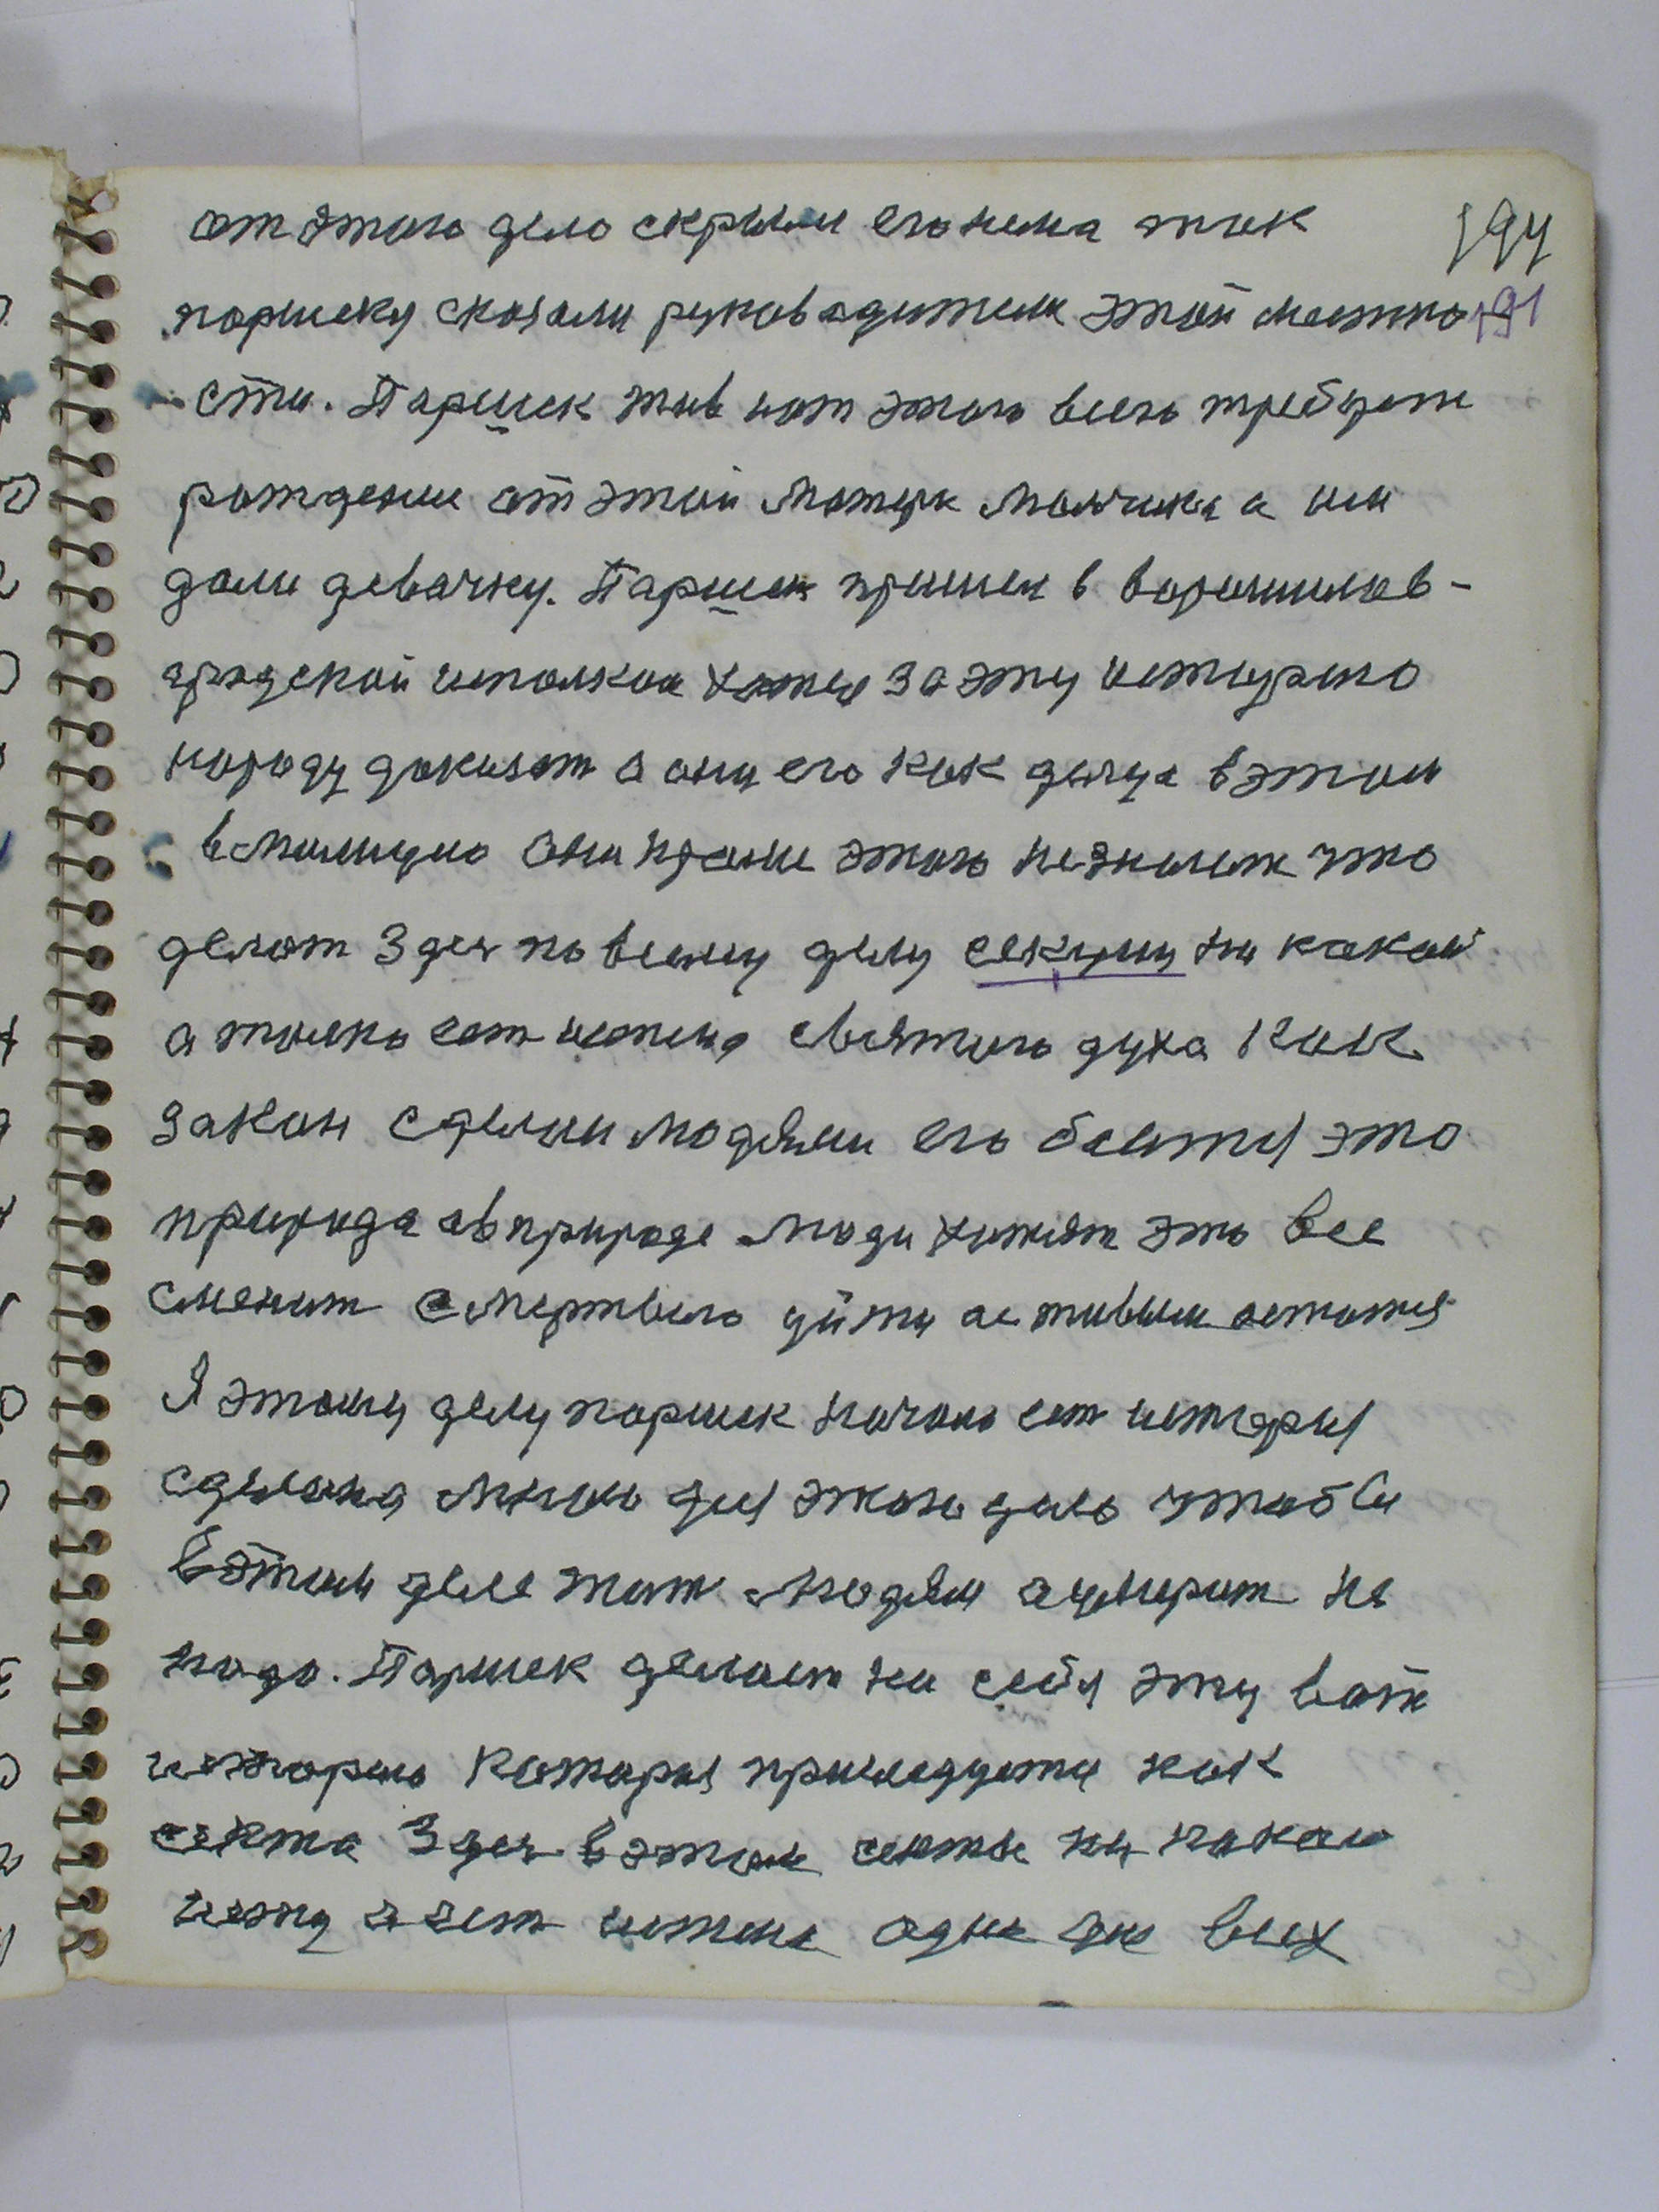 от этого дело скрыли его нема так 194
паршеку сказали руководители этой местно 191
сти. Паршек жив и от этого всего требует
рождение от этой матери мальчика а им
дали девачку. Паршек пришел в ворошилов-
градской исполком хотел за эту исторыю
народу доказат а они его как дельца в этом
в милицию они кроме этого незнают что
делают Здес по всему делу секции ни какой
а только ест истена святого духа как
закон сделан людями его боятся это
природа а в природе люди хотят это все
сменит с мертвого уйти а с живым остатся
Я этому делу паршек начало ест исторыя
сделана мною для этого дела чтобы
в этом деле жит людям а умират не
надо. Паршек делает на себя эту вот
исторыю которыя приследуется как
секта Здес в этом секты ни какой
нету а ест истена одна для всех